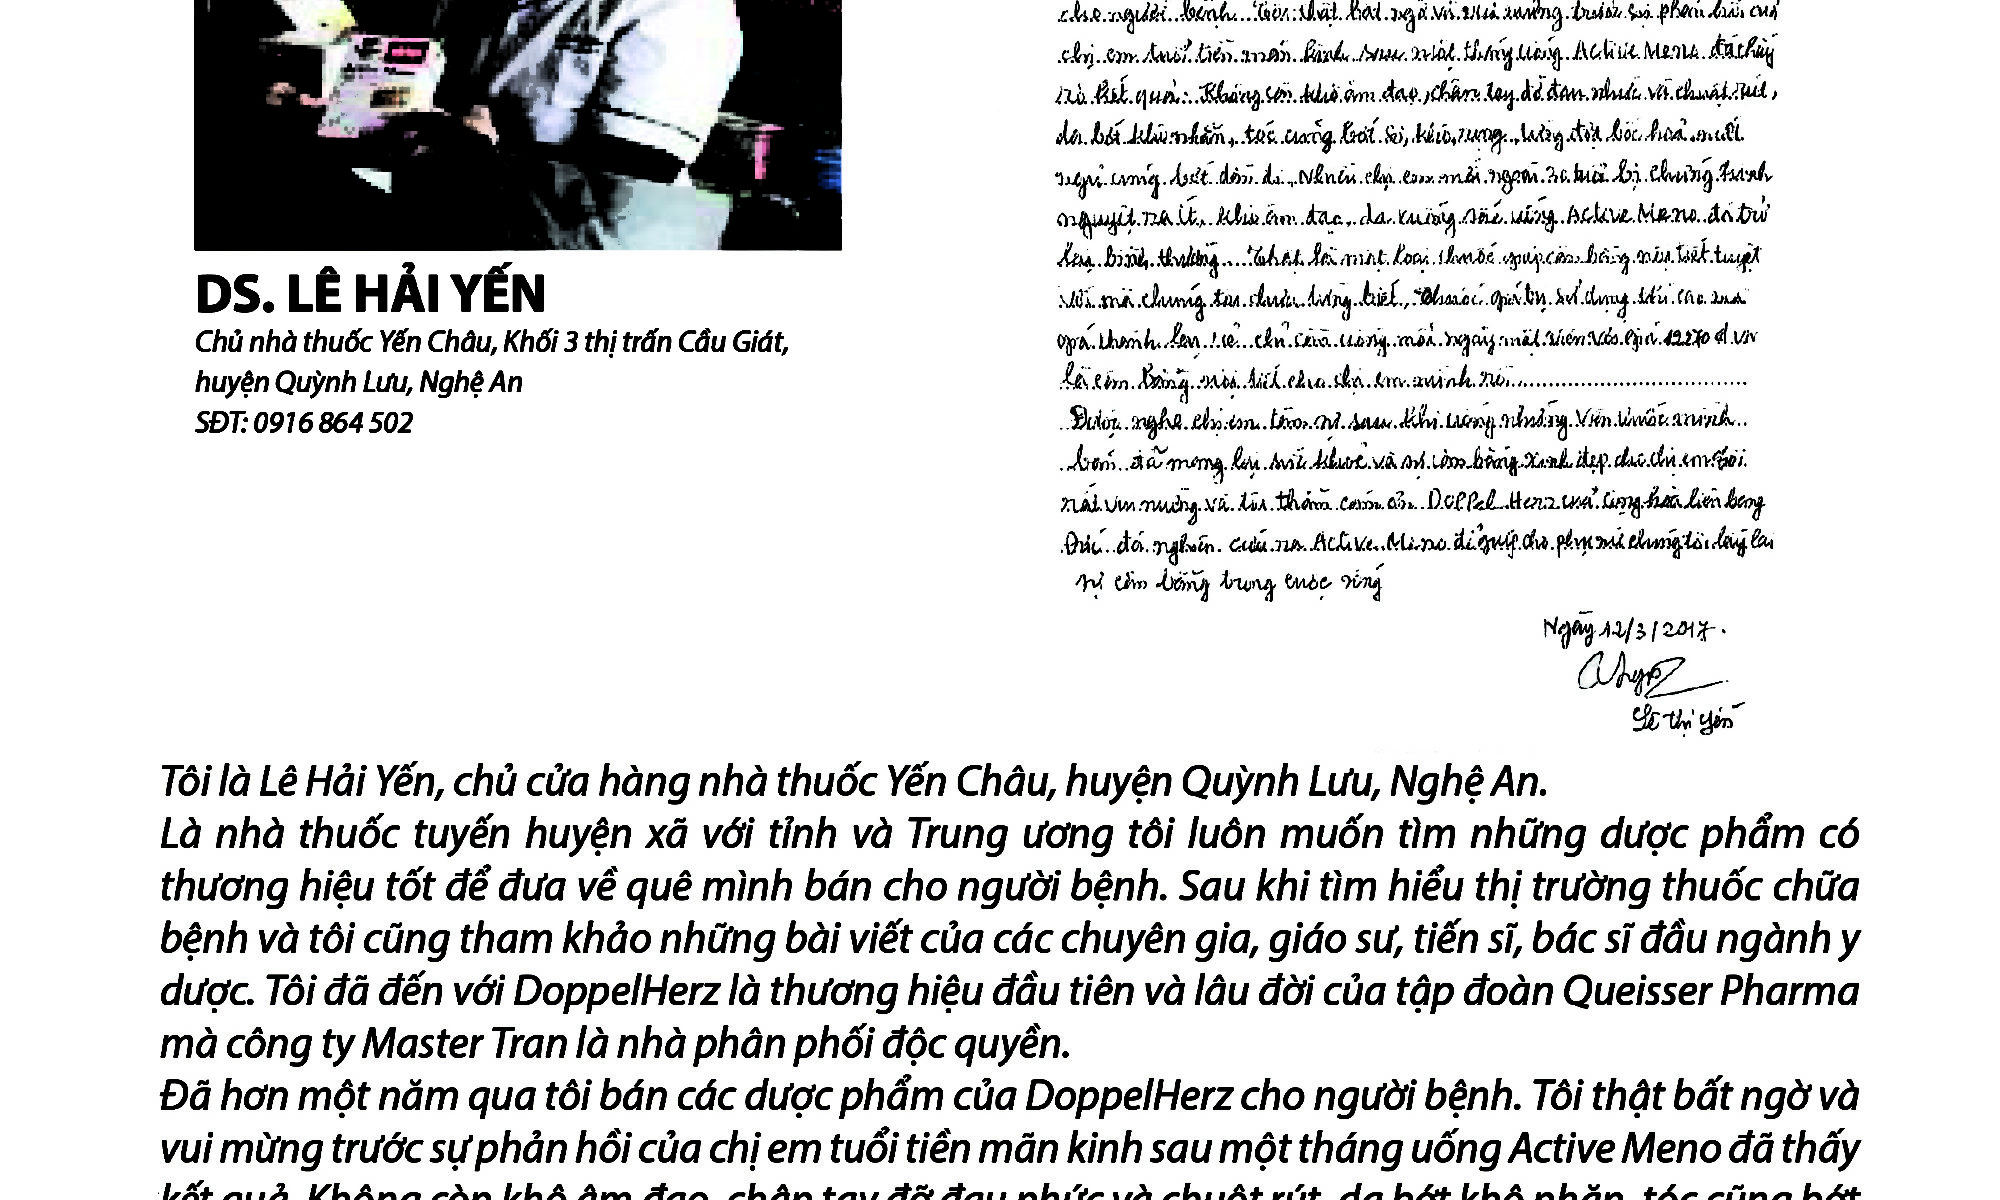 DS. LÊ HẢI YẾN
Chủ nhà thuốc Yến Châu, Khối 3 thị trấn Cầu Giát,
huyện Quỳnh Lưu, Nghệ An
SĐT: 0916 864 502
cho người bệnh. Tôi thật bất ngờ và vui mừng trước sự phản hồi của
chị em tuổi tiền mãn kinh sau một tháng uống Active Meno đã thấy
kết quả. Không còn khô âm đạo, chân tay đỡ đau nhức và chuột rút,
da bớt khô nhăn, tóc cũng bớt
nguyệt ra ít, khô âm đạo, da xuống sắc uống Active Meno đã trở
lại bình thường. Thật là một loại thuốc giúp cân bằng nội tiết tuyệt
vời mà chúng ta chưa từng biết,
mỗi ngày một viên với giá 12270 đ
là cân bằng nội tiết cho chị em mình rồi
Được nghe chị em tâm sự sau khi uống những viên thuốc mình
bán đã mang lại sức khoẻ và sự cân bằng xinh đẹp cho chị em tôi
rất vui mừng và tôi thầm cảm ơn DOPPel Herz của cộng hoà liên bang
Đức đã nghiên cứu ra Active Meno để giúp cho phụ nữ chúng tôi lấy lại
sự cân bằng trong cuộc sống
Ngày 12/3/2017.
Lê Thị Yến
Tôi là Lê Hải Yến, chủ cửa hàng nhà thuốc Yến Châu, huyện Quỳnh Lưu, Nghệ An.
Là nhà thuốc tuyến huyện xã với tỉnh và Trung ương tôi luôn muốn tìm những dược phẩm có
thương hiệu tốt để đưa về quê mình bán cho người bệnh. Sau khi tìm hiểu thị trường thuốc chữa
bệnh và tôi cũng tham khảo những bài viết của các chuyên gia, giáo sư, tiến sĩ, bác sĩ đầu ngành y
dược. Tôi đã đến với DoppelHerz là thương hiệu đầu tiên và lâu đời của tập đoàn Queisser Pharma
mà công ty Master Tran là nhà phân phối độc quyền.
Đã hơn một năm qua tôi bán các dược phẩm của DoppelHerz cho người bệnh. Tôi thật bất ngờ và
vui mừng trước sự phản hồi của chị em tuổi tiền mãn kinh sau một tháng uống Active Meno đã thấy
kết quả. Không còn khô âm đạo, chân tay đỡ đau nhức và chuột rút, da bớt khô nhăn, tóc cũng bớt